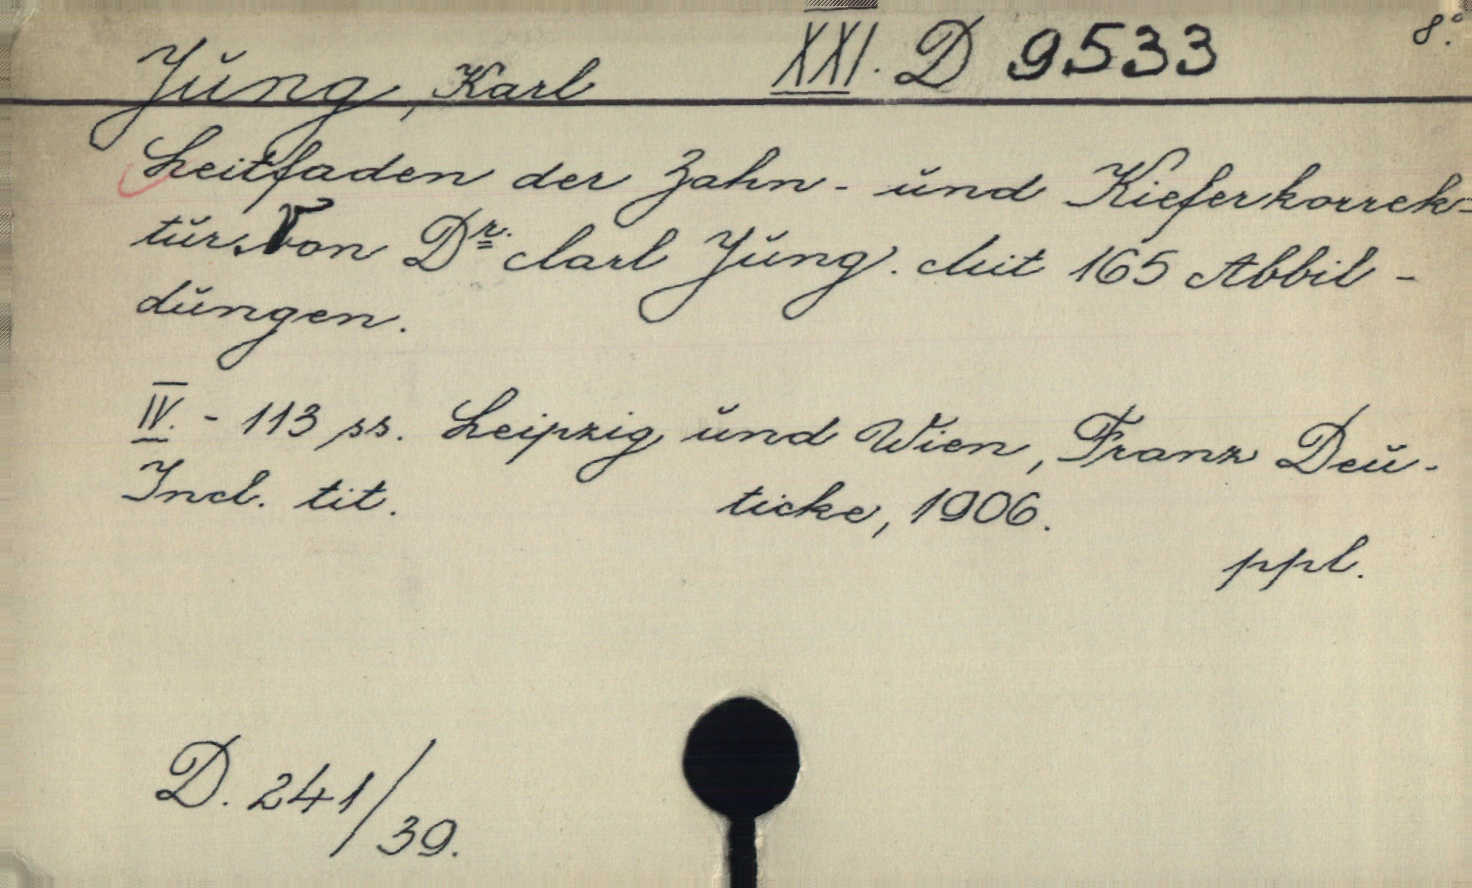 Jung, Karl XXI. D 9533 8°.
Leitfaden der Zahn- und Kieferkorrek=
tur. Von Dr. Carl Jung. Mit 165 Abbil-
dungen.
IV. - 113 ss. Leipzig und Wien, Franz Deu-
Incl. tit. ticke, 1906.
ppl.
D. 241/39.